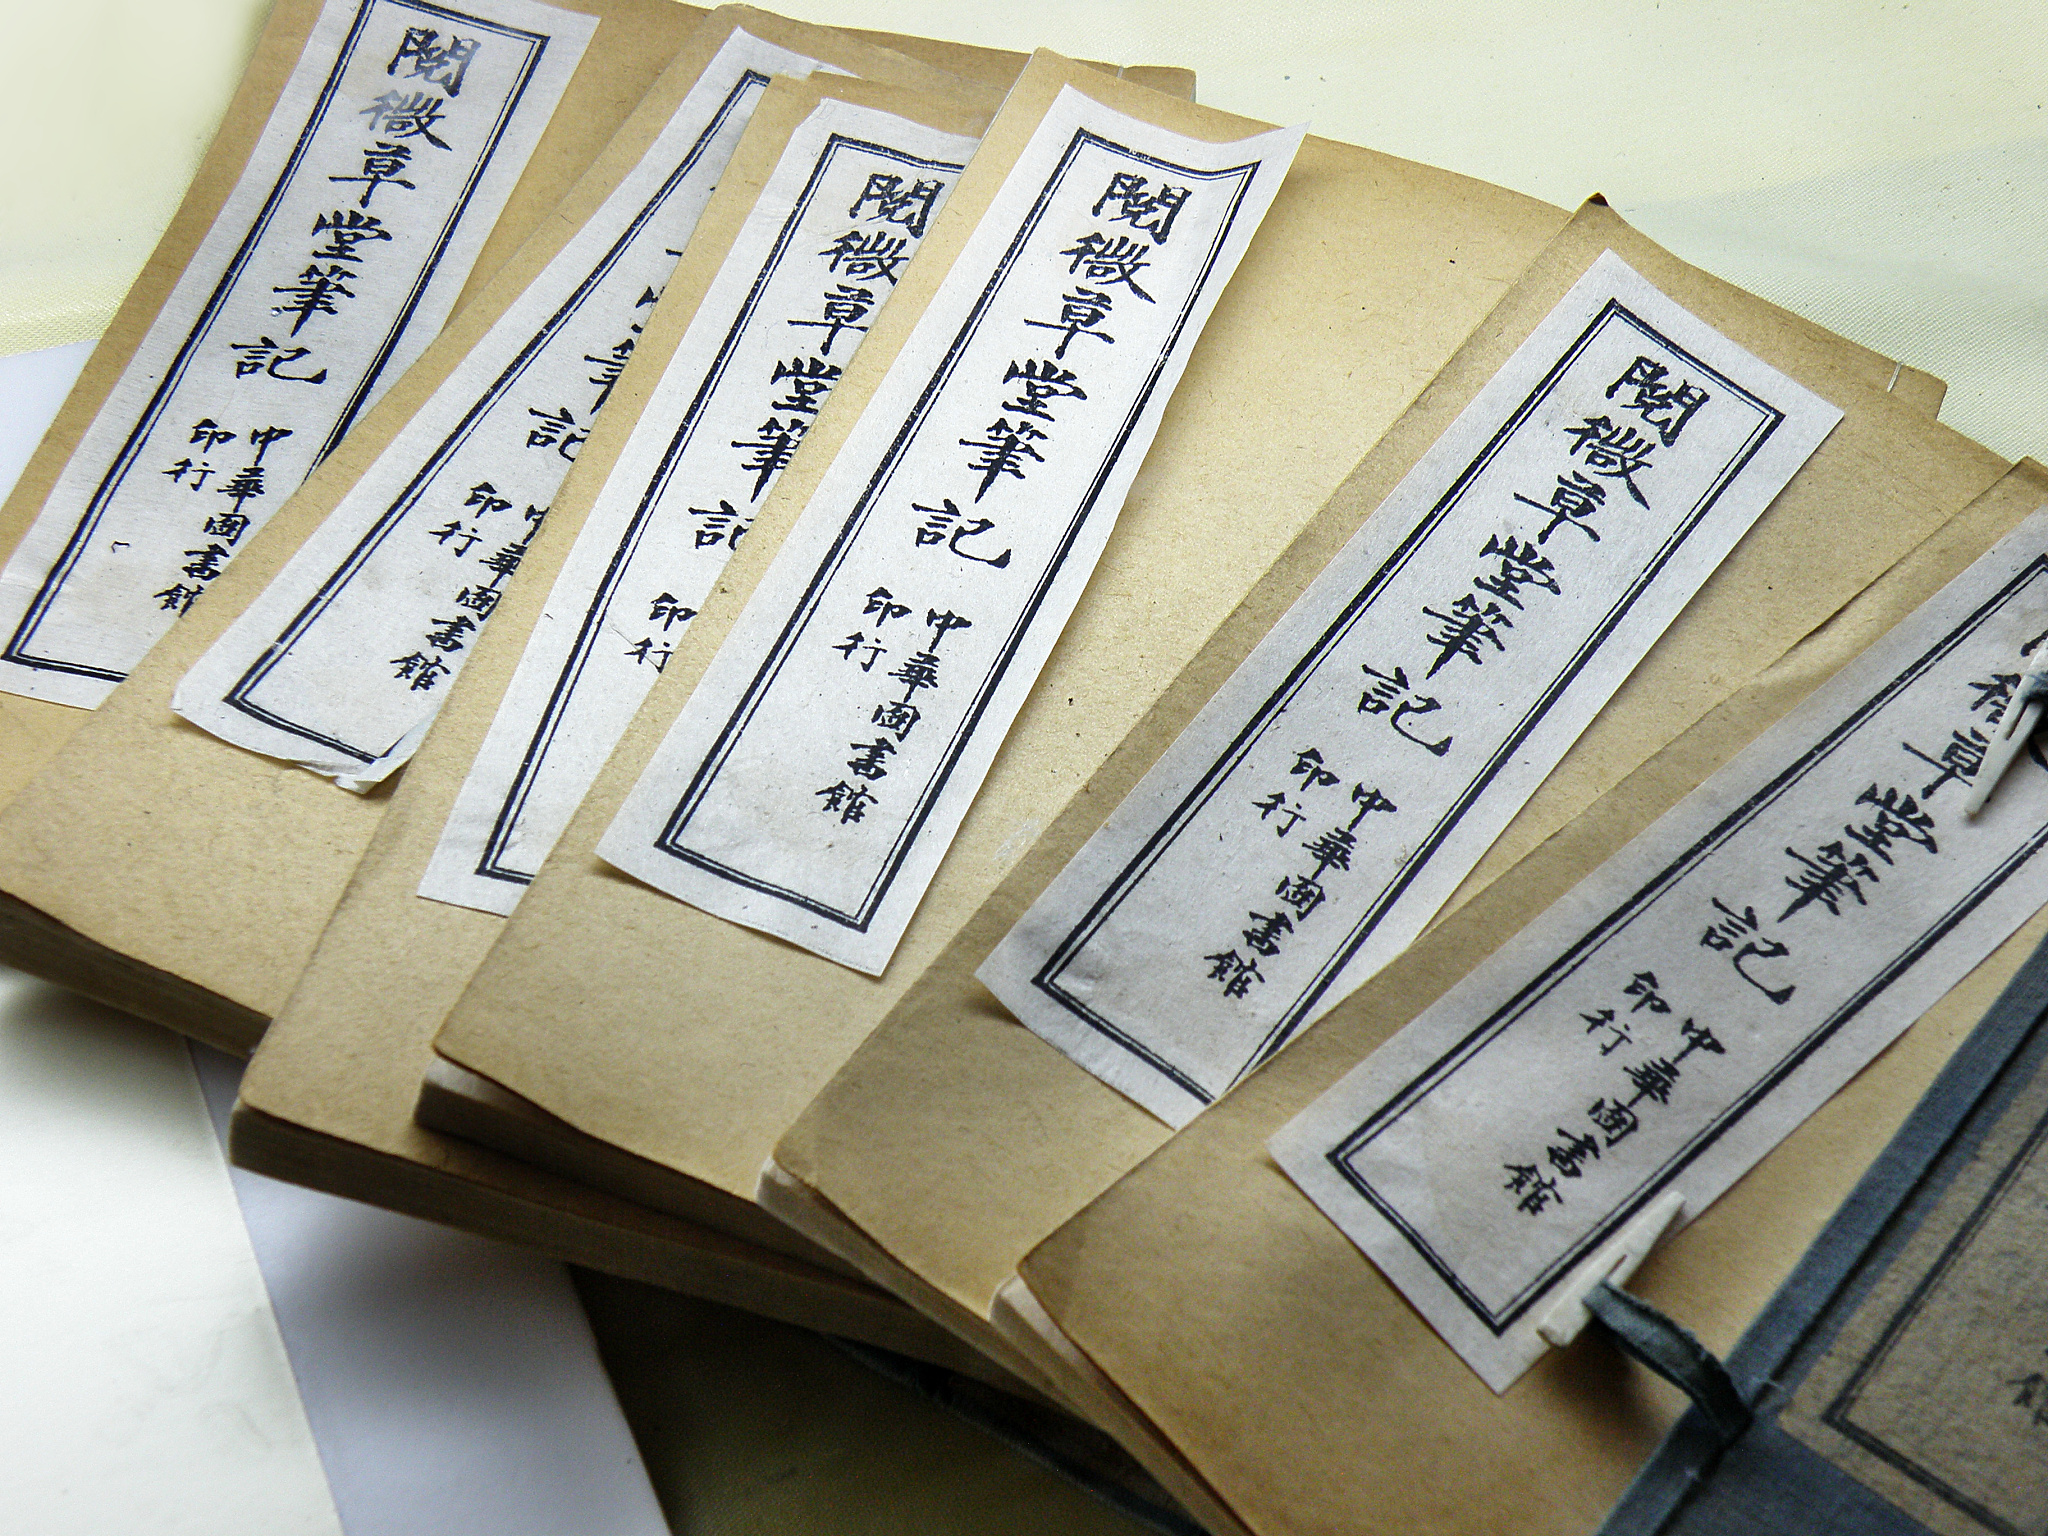 閱微草堂筆記
中華圖書館
印行
筆記
中華圖書館
印行
閱微草堂筆記
印行
閱微草堂筆記
中華圖書館
印行
閱微草堂筆記
中華圖書館
印行
草堂筆記
中華圖書館
印行